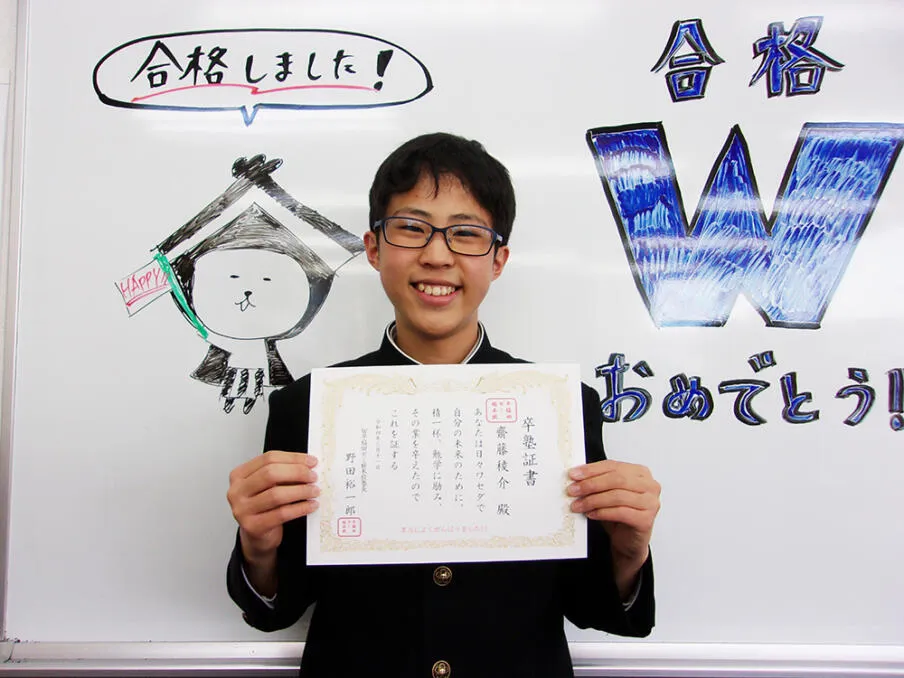 合格しました!
HAPPY
合格
W
おめでとう!
卒塾証書
齋藤稜介 殿
あなたは日々ワセダで
自分の未来のために、
精一杯、勉学に励み、
その業を卒えたので
これを証する
野田裕一郎
本当によくがんばりました!!